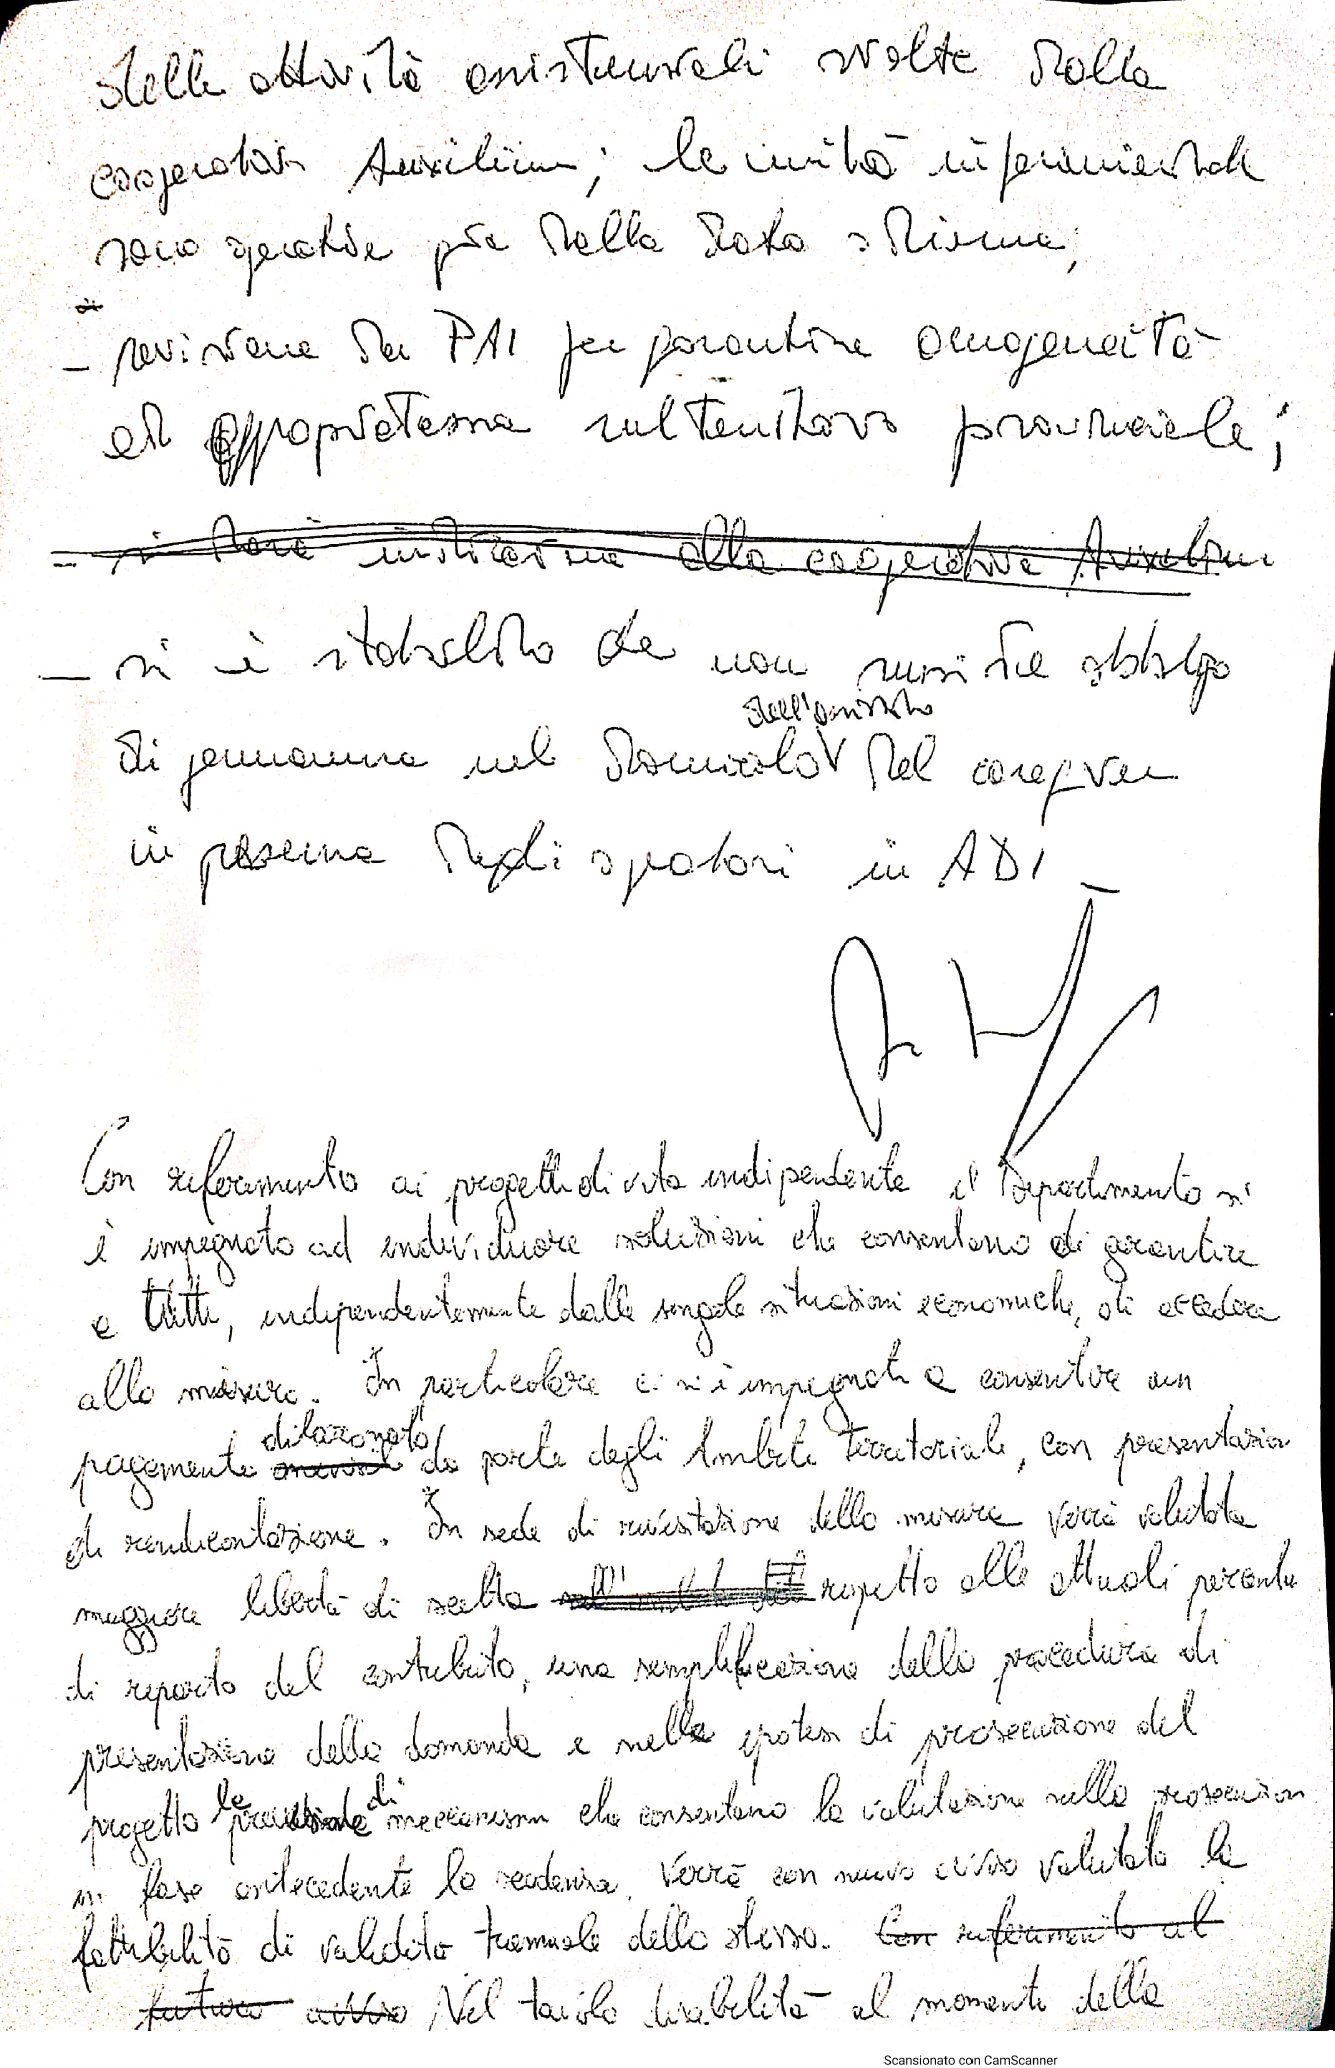 delle attività assistenziali svolte dalla
cooperativa Auxilium; le unità infermieristiche
sono operative già dalla data odierna;
- revisione dei PAI per garantire omogeneità
ed appropriatezza sul territorio provinciale;
- si darà indicazione alla cooperativa Auxilium
- si è stabilito che non sussiste obbligo
dell'assistito
di permanenza nel domicilio del caregiver
in presenza degli operatori in ADI
Con riferimento ai progetti di vita indipendente il Dipartimento si
è impegnato ad individuare soluzioni che consentano di garantire
a tutti, indipendentemente dalle singole situazioni economiche, di accedere
alla misura. In particolare ci si è impegnati a consentire un
dilazionato
pagamento da parte degli Ambiti Territoriali, con presentazione
di rendicontazione. In sede di rivisitazione della misura verrà valutata
maggiore libertà di scelta rispetto alle attuali percentuali
di riparto del contributo, una semplificazione della procedura di
presentazione della domanda e nella ipotesi di prosecuzione del
progetto la previsione di meccanismi che consentano la valutazione sulla prosecuzione
in fase antecedente la scadenza. Verrà con nuovo avviso valutata la
fattibilità di validità triennale dello stesso. Con riferimento al
futuro avviso Nel tavolo disabilità al momento della
Scansionato con CamScanner